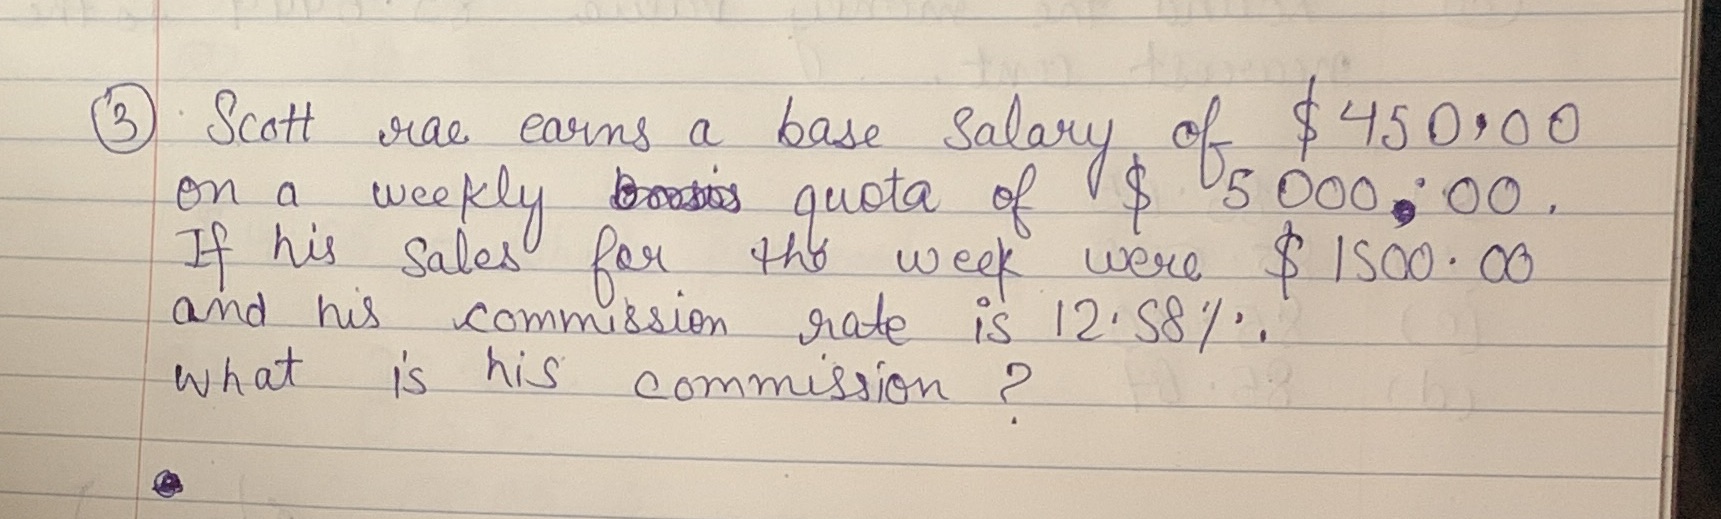 3 Scott rae earns a base salary of $450.00
on a weekly quota of $5000.00.
If his sales for the week were $1500.00
and his commission rate is 12.58%.
what is his commission?